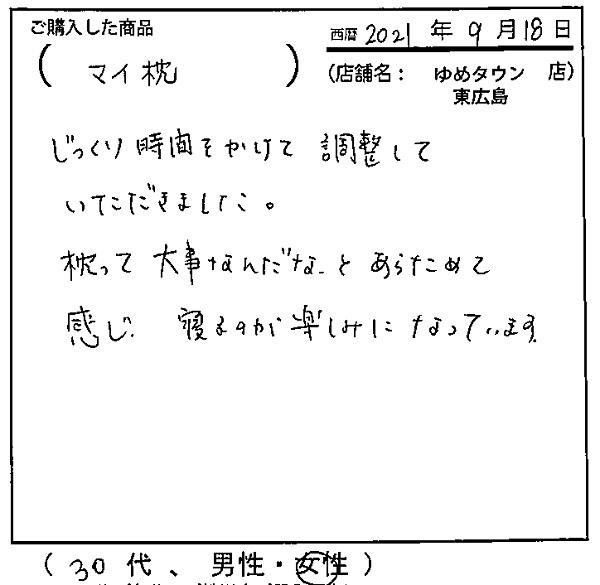 ご購入した商品
西暦 2021 年 9 月 18 日
( マイ枕 )
(店舗名： ゆめタウン 東広島 店)
じっくり時間をかけて 調整して
いただきました。
枕って 大事なんだな と あらためて
感じ、寝るのが楽しみになっています。
( 30 代 、 男性・女性 )